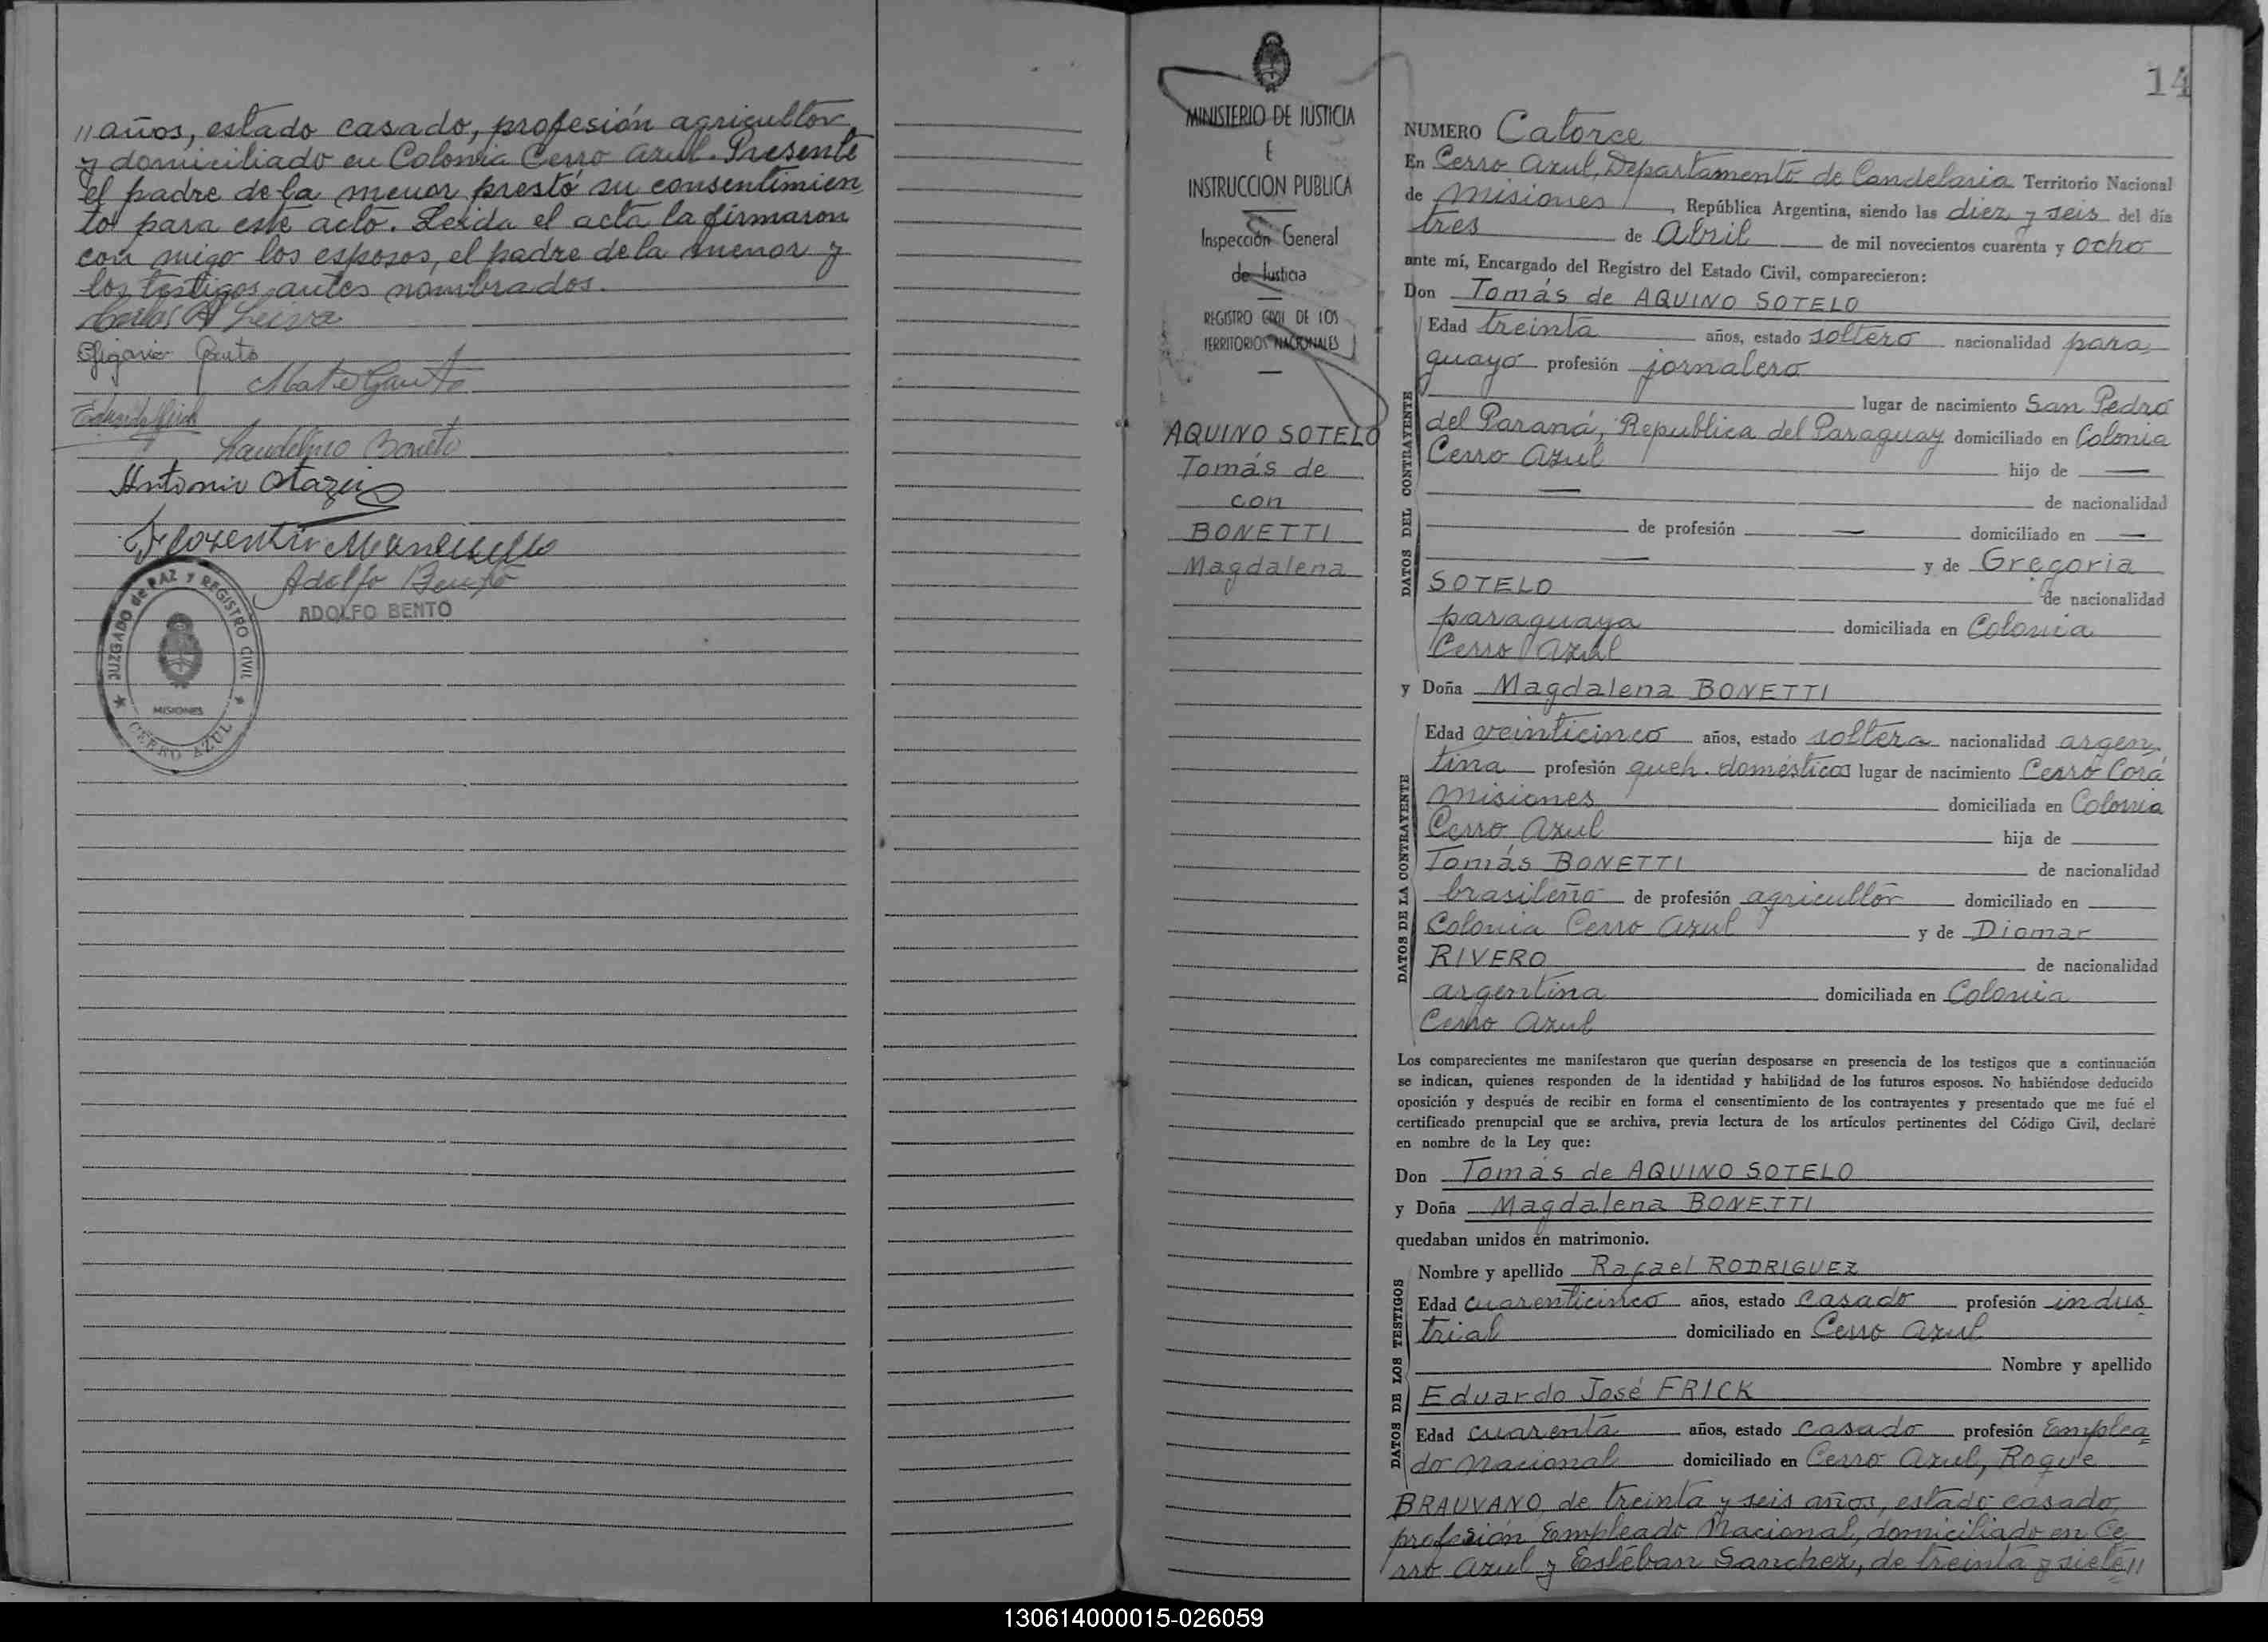 "años, estado casado, profesión agricultor
y domiciliado en Colonia Cerro Azul. Presente
el padre de la menor prestó su consentimien
to para este acto. Leida el acta la firmaron
con migo los esposos, el padre de la menor y
los testigos antes nombrados.
Carlos A Leiva
Antonio Otazu
Adolfo Bento
ADOLFO BENTO
JUZGADO de PAZ y REGISTRO CIVIL
MISIONES
CERRO AZUL
MINISTERIO DE JUSTICIA
E
INSTRUCCION PUBLICA
Inspección General
de Justicia
REGISTRO CIVIL DE LOS
TERRITORIOS NACIONALES
AQUINO SOTELO
Tomás de
con
BONETTI
Magdalena
14
NUMERO Catorce
En Cerro Azul, Departamento de Candelaria Territorio Nacional
de Misiones, República Argentina, siendo las diez y seis del día
tres de Abril de mil novecientos cuarenta y ocho
ante mí, Encargado del Registro del Estado Civil, comparecieron:
Don Tomás de AQUINO SOTELO
DATOS DEL CONTRAYENTE
Edad treinta años, estado soltero nacionalidad para
guayo profesión jornalero
lugar de nacimiento San Pedro
del Paraná, Republica del Paraguay domiciliado en Colonia
Cerro Azul hijo de —
— de nacionalidad
de profesión — domiciliado en —
— y de Gregoria
SOTELO de nacionalidad
paraguaya domiciliada en Colonia
Cerro Azul
y Doña Magdalena BONETTI
DATOS DE LA CONTRAYENTE
Edad veinticinco años, estado soltera nacionalidad argen
tina profesión queh. domésticos lugar de nacimiento Cerro Corá
Misiones domiciliada en Colonia
Cerro Azul hija de
Tomás BONETTI de nacionalidad
brasileño de profesión agricultor domiciliado en
Colonia Cerro Azul y de Diomar
RIVERO de nacionalidad
argentina domiciliada en Colonia
Cerro Azul
Los comparecientes me manifestaron que querían desposarse en presencia de los testigos que a continuación
se indican, quienes responden de la identidad y habilidad de los futuros esposos. No habiéndose deducido
oposición y después de recibir en forma el consentimiento de los contrayentes y presentado que me fué el
certificado prenupcial que se archiva, previa lectura de los artículos pertinentes del Código Civil, declaré
en nombre de la Ley que:
Don Tomás de AQUINO SOTELO
y Doña Magdalena BONETTI
quedaban unidos en matrimonio.
DATOS DE LOS TESTIGOS
Nombre y apellido Rafael RODRIGUEZ
Edad cuarenticinco años, estado casado profesión indus
trial domiciliado en Cerro Azul
Nombre y apellido
Eduardo José FRICK
Edad cuarenta años, estado casado profesión Emplea
do Nacional domiciliado en Cerro Azul, Roque
BRAUVANO, de treinta y seis años, estado casado,
profesión Empleado Nacional, domiciliado en Ce
rro Azul y Estéban Sanchez, de treinta y siete"
130614000015-026059